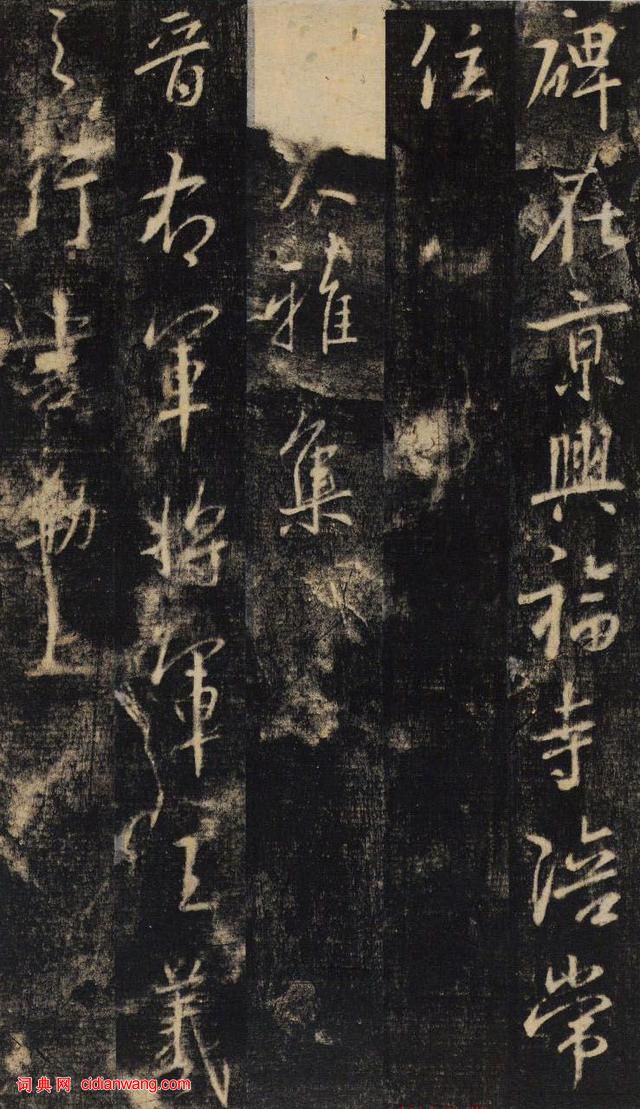 碑在京興福寺陪常
住
大雅集
晉右軍將軍王羲
之行書勒上
词典网 cidianwang.com